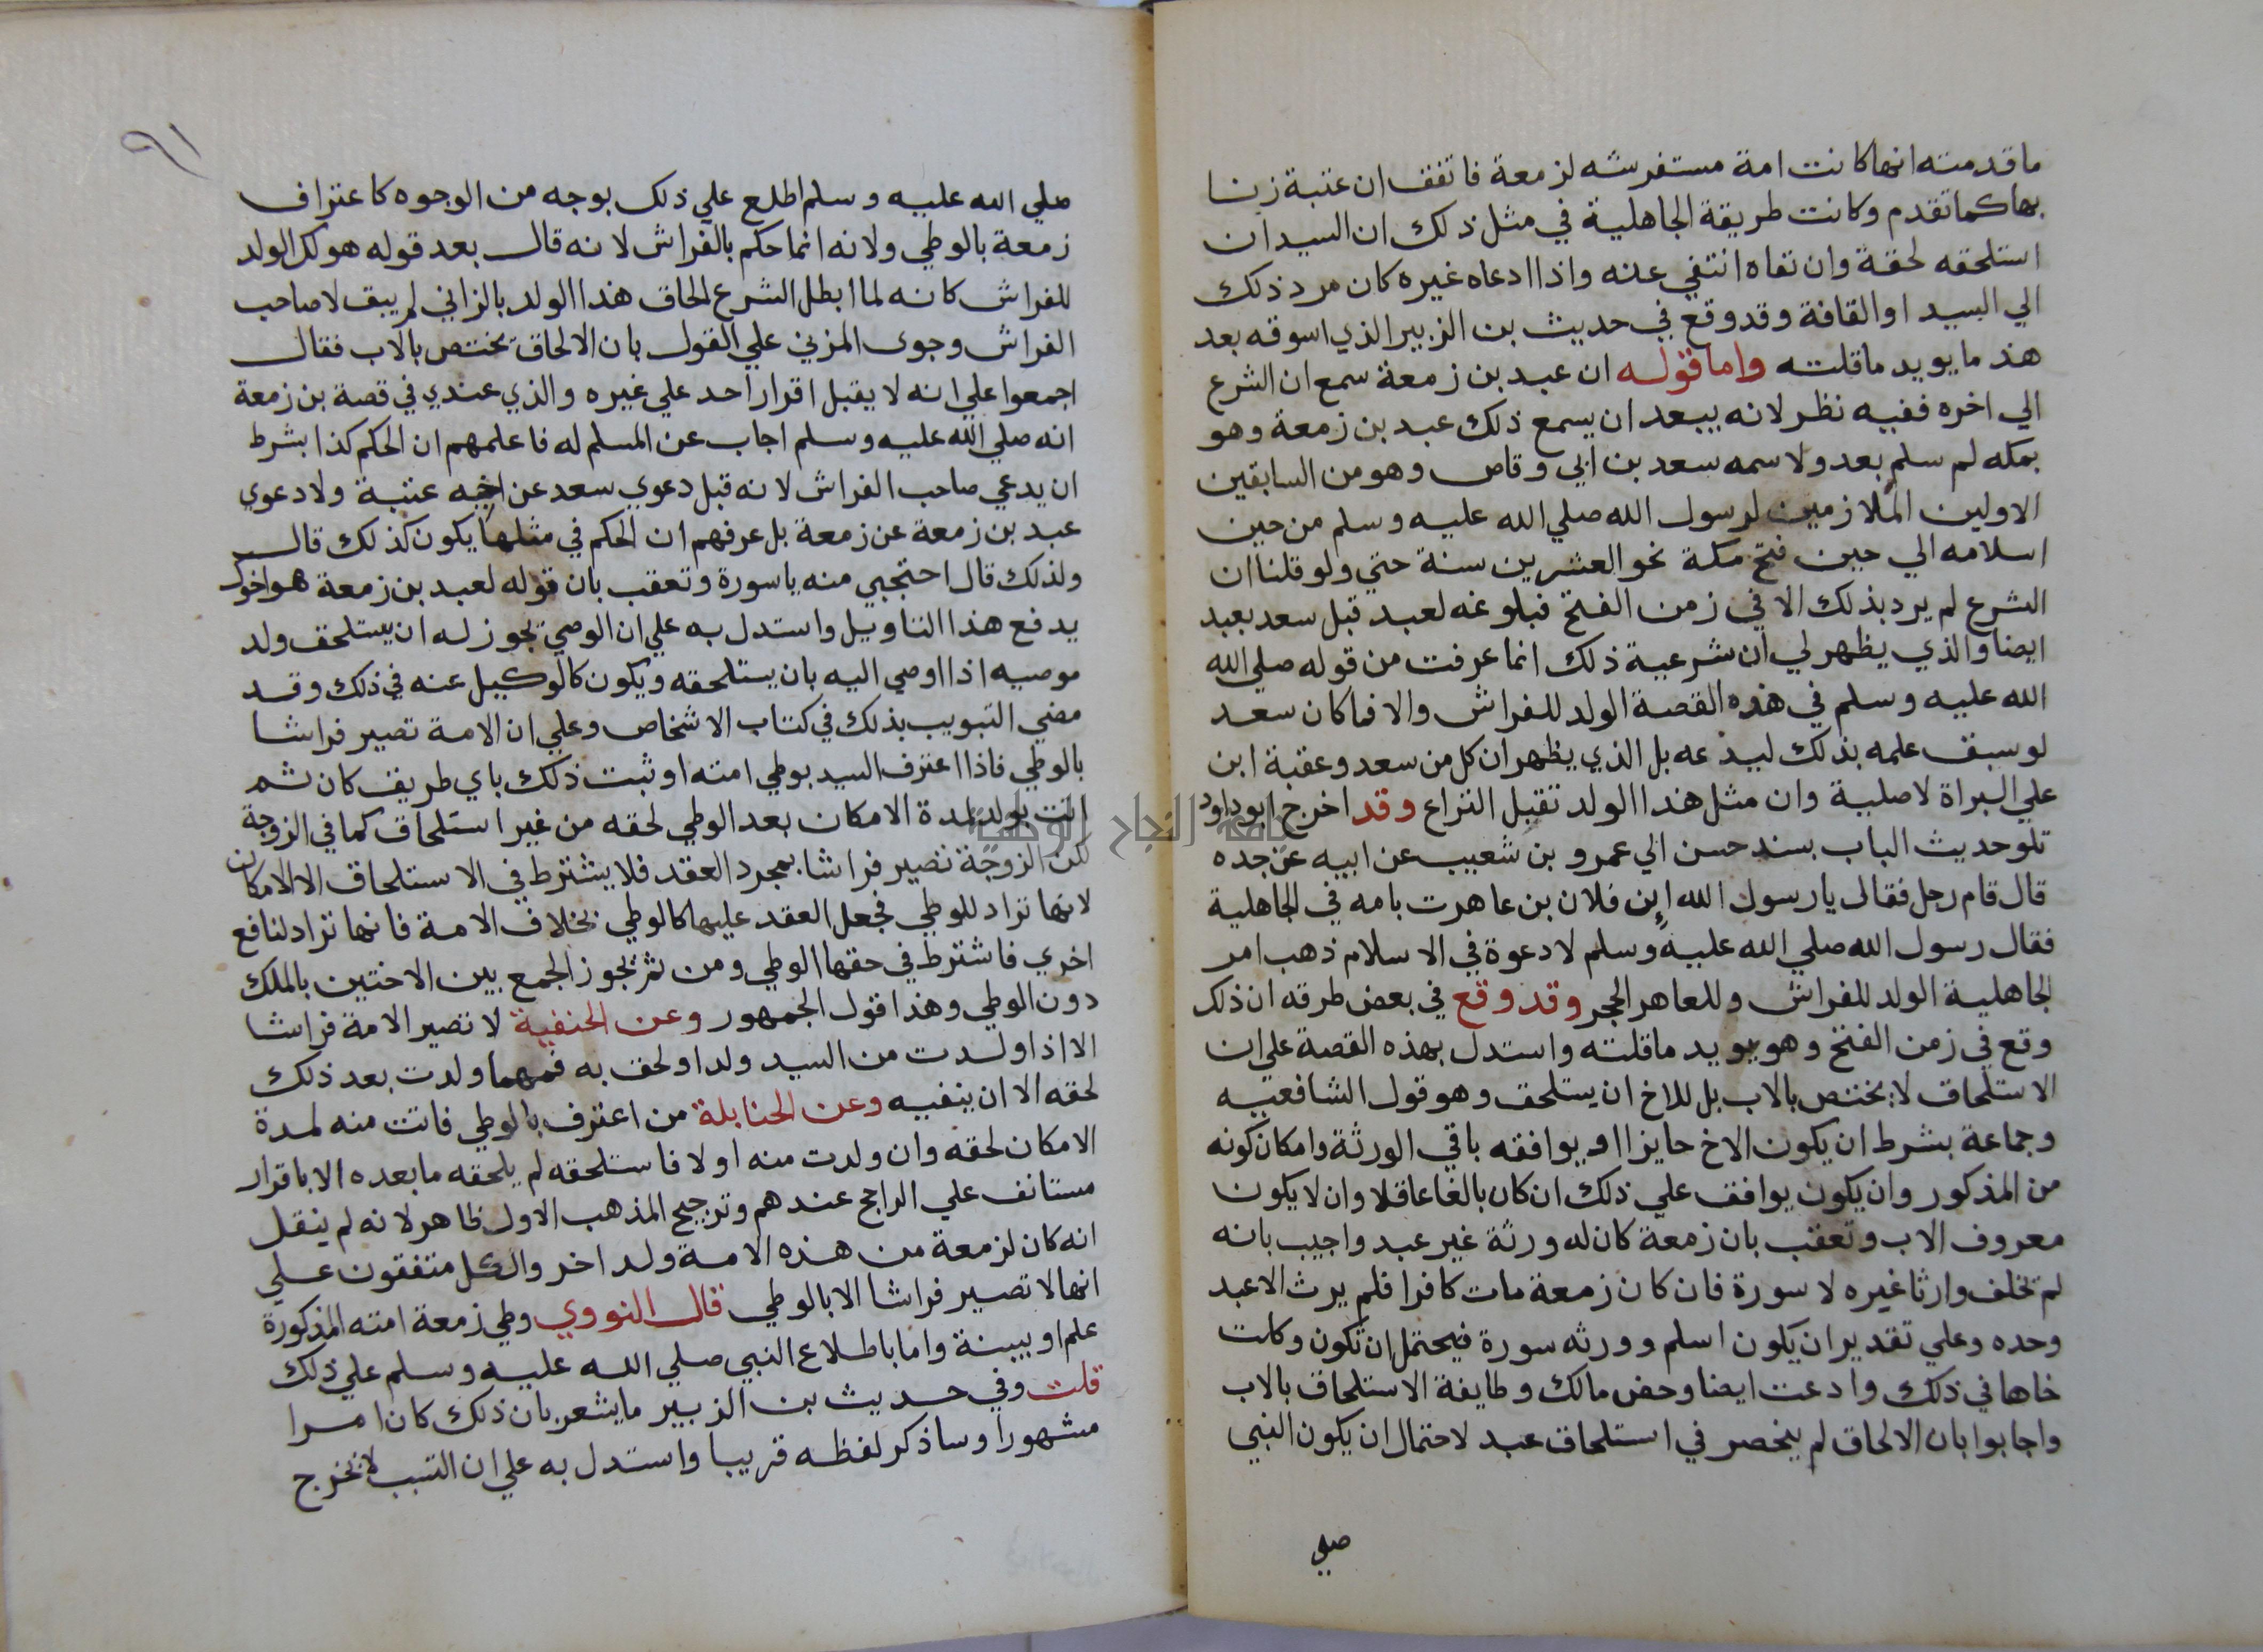 ما قدمته انها كانت امة مستفرشه لزمعة فاتفق ان عتبة زنا
بها كما تقدم وكانت طريقة الجاهلية في مثل ذلك ان السيد ان
استلحقه لحقة وان نفاه انتفي عنه واذا ادعاه غيره كان مرد ذلك
الي السيد او القافة وقد وقع في حديث بن الزبير الذي اسوقه بعد
هذ ما يويد ما قلته واما قوله ان عبد بن زمعة سمع ان الشرع
الي اخره ففيه نظر لانه يبعد ان يسمع ذلك عبد بن زمعة وهو
بمكه لم سلم بعد ولا سمه سعد بن ابي وقاص وهو من السابقين
الاولين الملازمين لرسول الله صلي الله عليه وسلم من حين
اسلامه الي حين فتح مكة نحو العشرين سنة حتي ولو قلنا ان
الشرع لم يرد بذلك الا في زمن الفتح فبلوغه لعبد قبل سعد بعبد
ايضا والذي يظهر لي ان شرعية ذلك انما عرفت من قوله صلي الله
الله عليه وسلم في هذه القصة الولد للفراش والا فما كان سعد
لو سبق علمه بذلك ليدعه بل الذي يظهر ان كل من سعد وعقبة ابن
علي البراة لاصلية وان مثل هذا الولد تقبل النزاع وقد اخرج ابو داود
تلو حديث الباب بسند حسن الي عمرو بن شعيب عن ابيه عن جده
قال قام رجل فقال يا رسول الله ابن فلان بن عاهرت بامه في الجاهلية
فقال رسول الله صلي الله عليه وسلم لا دعوة في الاسلام ذهب امر
الجاهلية الولد للفراش وللعاهر الحجر وقد وقع في بعض طرقه ان ذلك
وقع في زمن الفتح وهو يويد ما قلته واستدل بهذه القصة علي ان
الاستلحاق لا يختص بالاب بل للاخ ان يستلحق وهو قول الشافعيه
وجماعة بشرط ان يكون الاخ حايزا او يوافقه باقي الورثة وامكان كونه
من المذكور وان يكون يوافق علي ذلك ان كان بالغا عاقلا وان لا يكون
معروف الاب وتعقب بان زمعة كان له ورثة غير عبد واجيب بانه
لم يخلف وارثا غيره لا سورة فان كان زمعة مات كافرا فلم يرث الا عبد
وحده وعلي تقدير ان يكون اسلم وورثه سورة فيحتمل ان تكون وكلت
خاها في ذلك وادعت ايضا وحض مالك وطايفة الاستلحاق بالاب
واجابوا بان الالحاق لم ينحصر في استلحاق عبد لاحتمال ان يكون النبي
صلي
٩١
صلي الله عليه وسلم اطلع علي ذلك بوجه من الوجوه كاعتراف
زمعة بالوطي ولانه انما حكم بالفراش لانه قال بعد قوله هو لك الولد
للفراش كانه لما ابطل الشرع لحاق هذا الولد بالزاني لم يبق لا صاحب
الفراش وجوي المزني علي القول بان الالحاق يختص بالاب فقال
اجمعوا علي انه لا يقبل اقرار احد علي غيره والذي عندي في قصة بن زمعة
انه صلي الله عليه وسلم اجاب عن المسلم له فاعلمهم ان الحكم كذا بشرط
ان يدعي صاحب الفراش لا نه قبل دعوي سعد عن اخيه عتبة ولا دعوي
عبد بن زمعة عن زمعة بل عرفهم ان الحكم في مثلها يكون كذلك قال
ولذلك قال احتجبي منه يا سورة وتعقب بان قوله لعبد بن زمعة هو اخوك
يدفع هذا التاويل واستدل به علي ان الوصي يجوز له ان يستلحق ولد
موصيه اذا اوصي اليه بان يستلحقه ويكون كالوكيل عنه في ذلك وقد
مضي التبويب بذلك في كتاب الاشخاص وعلي ان الامة تصير فراشا
بالوطي فاذا اعترف السيد بوطي امته او ثبت ذلك باي طريق كان ثم
اتت بولد لمدة الامكان بعد الوطي لحقه من غير استلحاق كما في الزوجة
لكن الزوجة تصير فراشا بمجرد العقد فلا يشترط في الاستلحاق الا الامكان
لانها تراد للوطي فجعل العقد عليها كالوطي بخلاف الامة فانها تراد لنافع
اخري فاشترط في حقها الوطي ومن ثم يجوز الجمع بين الاختين بالملك
دون الوطي وهذا قول الجمهور وعن الحنفية لا تصير الامة فراشا
الا اذا ولدت من السيد ولدا ولحق به فمهما ولدت بعد ذلك
لحقه الا ان ينفيه وعن الحنابلة من اعترف بالوطي فاتت منه لمدة
الامكان لحقه وان ولدت منه اولا فاستلحقه لم يلحقه ما بعده الا باقرار
مستانف علي الراجح عندهم وترجيح المذهب الاول ظاهر لانه لم ينقل
انه كان لزمعة من هذه الامة ولد اخر والكل متفقون علي
انها لا تصير فراشا الا بالوطي قال النووي وطي زمعة امته المذكورة
علم او ببينة واما باطلاع النبي صلي الله عليه وسلم علي ذلك
قلت وفي حديث بن الزبير ما يشعر بان ذلك كان امرا
مشهورا وساذكر لفظه قريبا واستدل به علي ان السبب لا يخرج
جامعة النجاح الوطنية